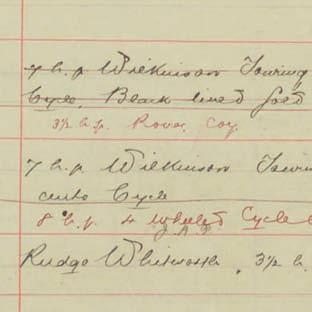 7 h.p Wilkinson Touring
Cycle, Black lined Gold
3½ h.p. Rover Coy.
7 h.p Wilkinson Tourin
auto Cycle
8 h.p. 4 Wheeled Cycle
J.A.P.
Rudge Whitworth, 3½ h.